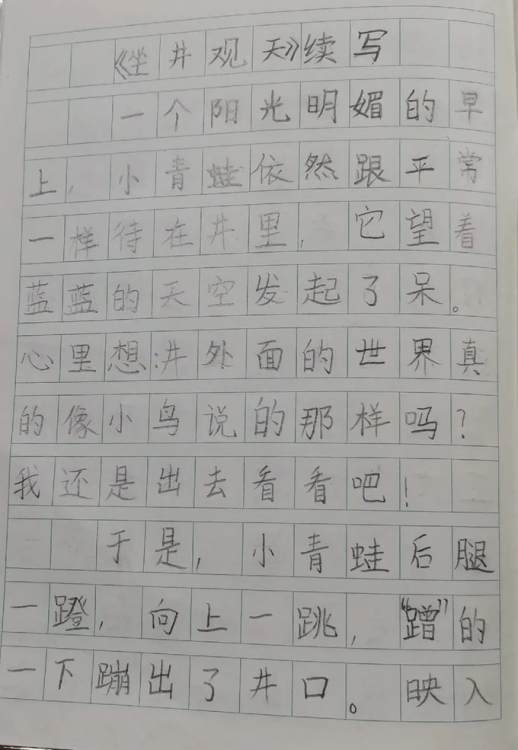 《坐井观天》续写
一个阳光明媚的早
上，小青蛙依然跟平常
一样待在井里，它望着
蓝蓝的天空发起了呆。
心里想:井外面的世界真
的像小鸟说的那样吗?
我还是出去看看吧!
于是，小青蛙后腿
一蹬，向上一跳，“蹭”的
一下蹦出了井口。映入